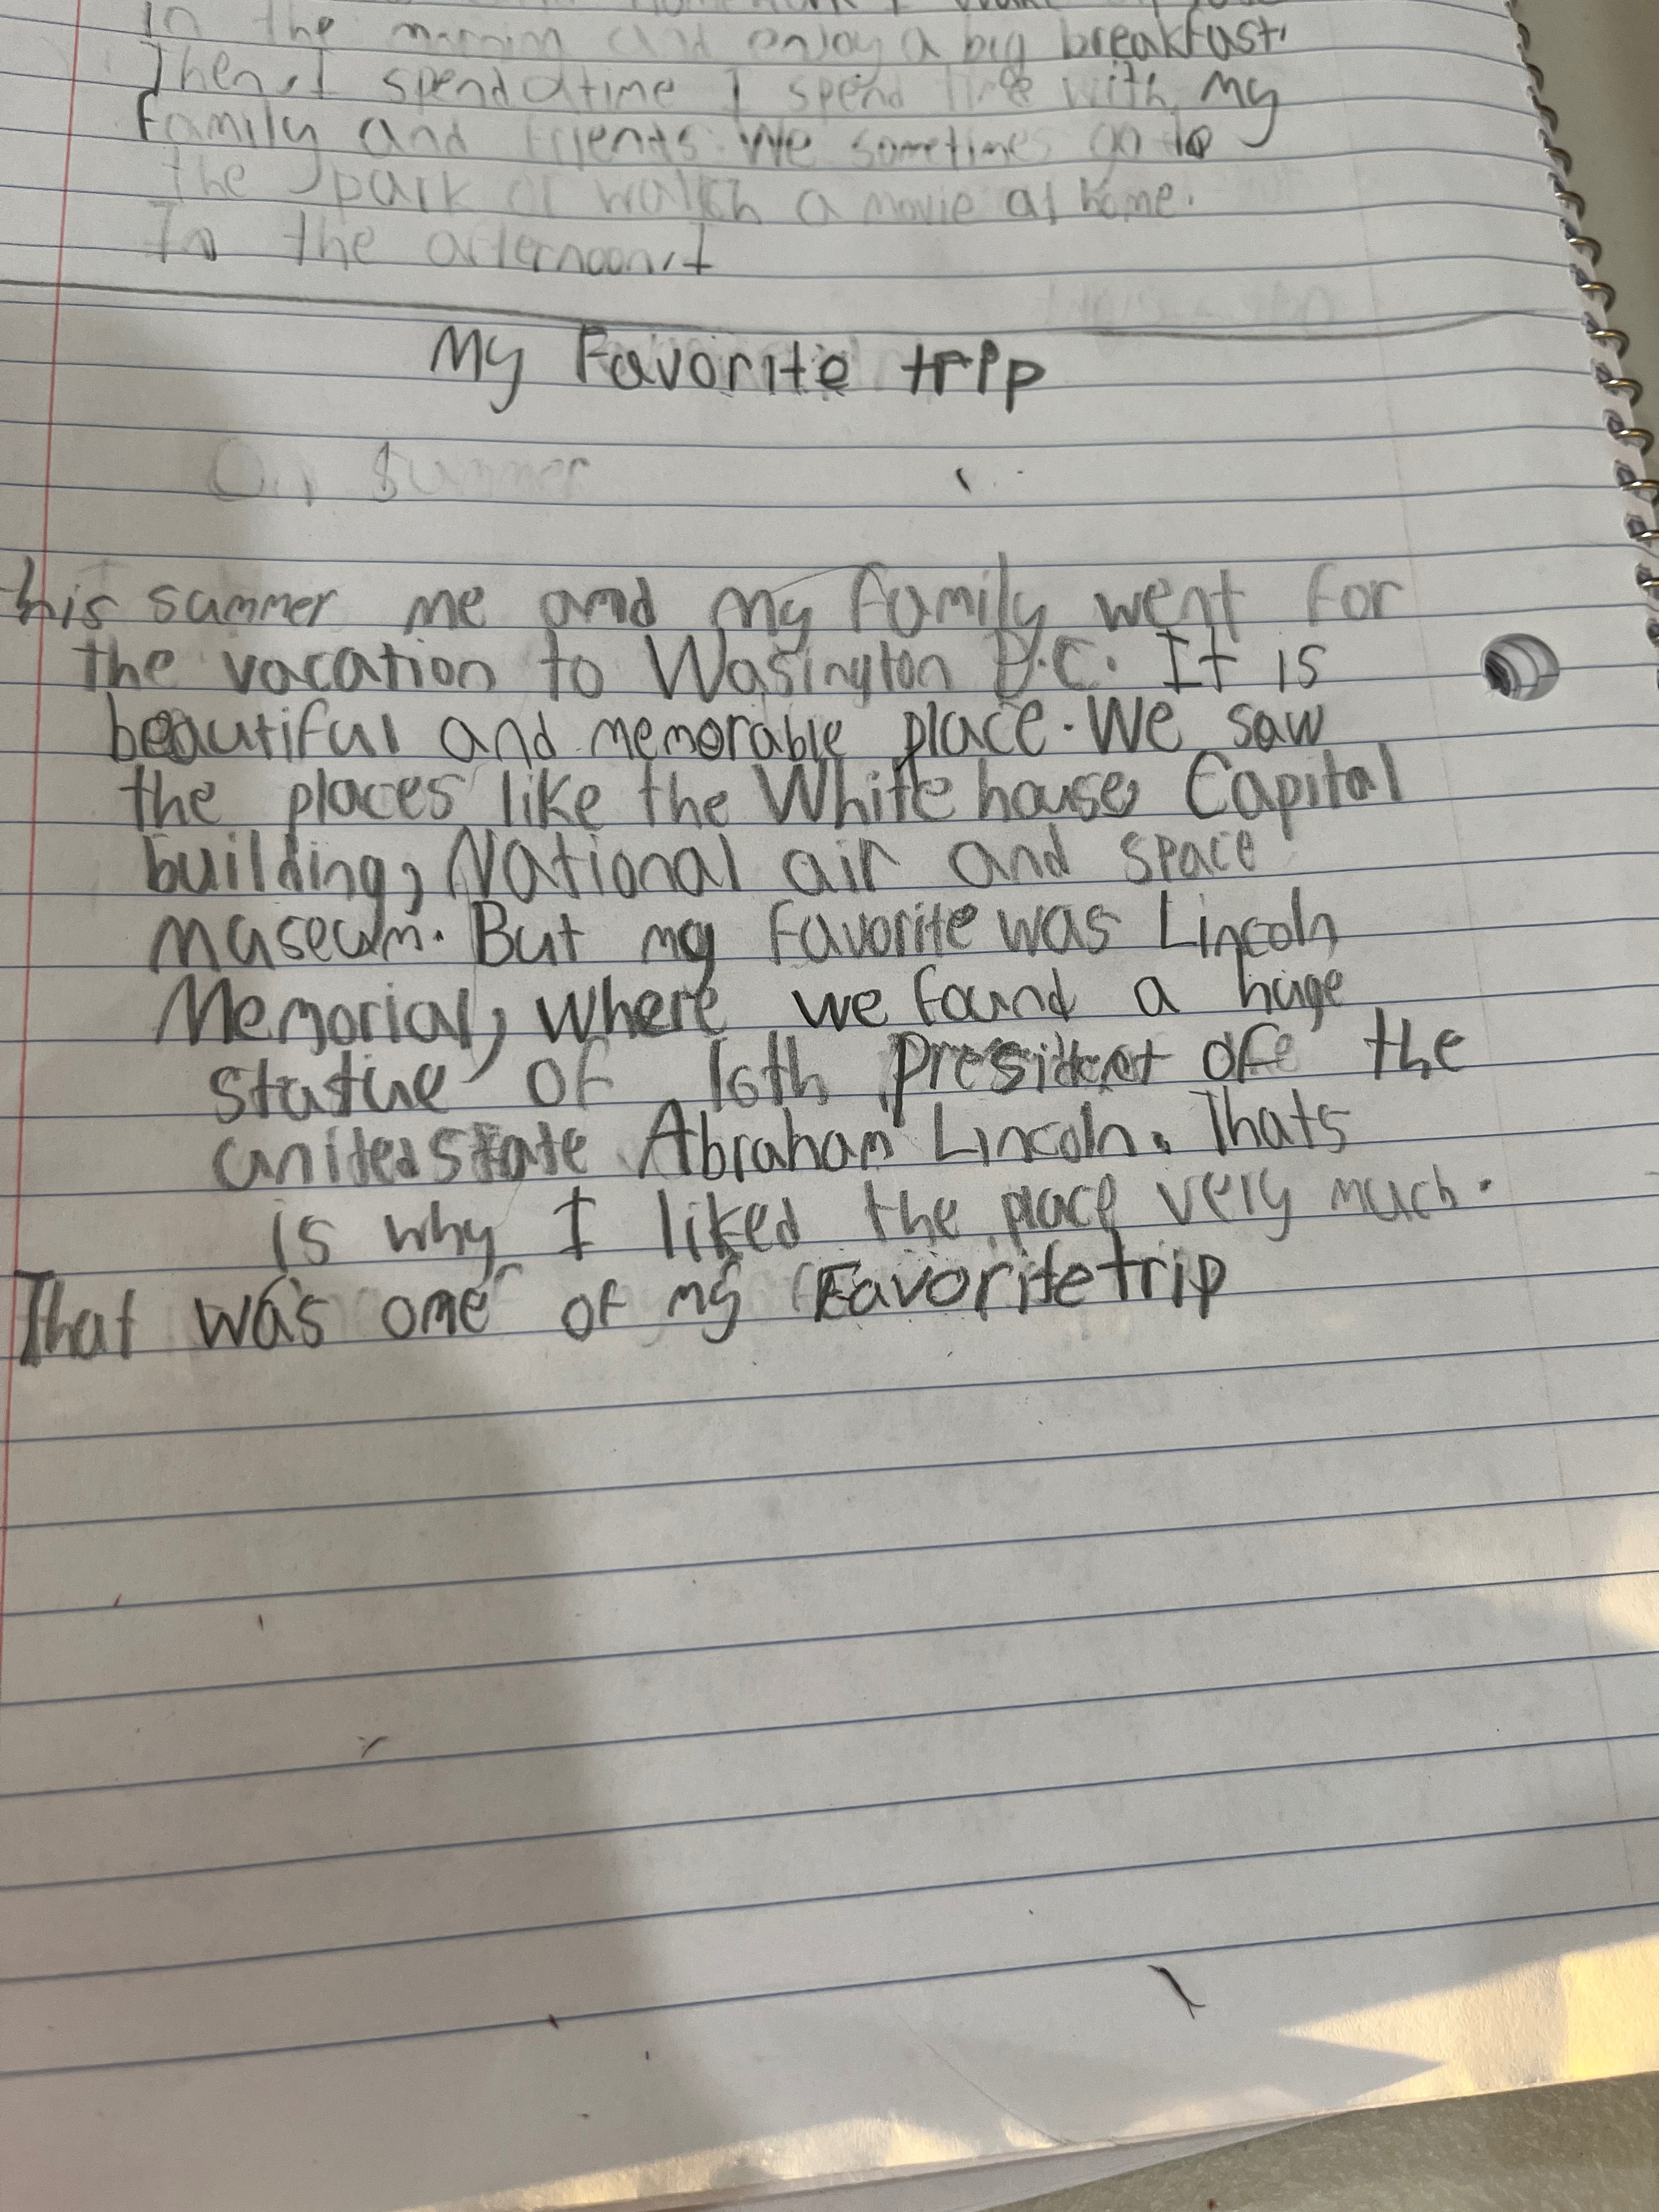 in the morning and enjoy a big breakfast.
Then, I spend a time I spend time with my
family and friends. We sometimes go to
the park or watch a movie at home.
In the afternoon, I
My Favorite trip
On Summer
his summer me and my family went for
the vacation to Wasington D.C. It is
beautiful and memorable place. We saw
the places like the White house, Capital
building, National air and space
museum. But my favorite was Lincoln
Memorial, where we found a huge
statue of 16th President of the
united state Abraham Lincoln. Thats
is why I liked the place very much.
That was one of my Favorite trip